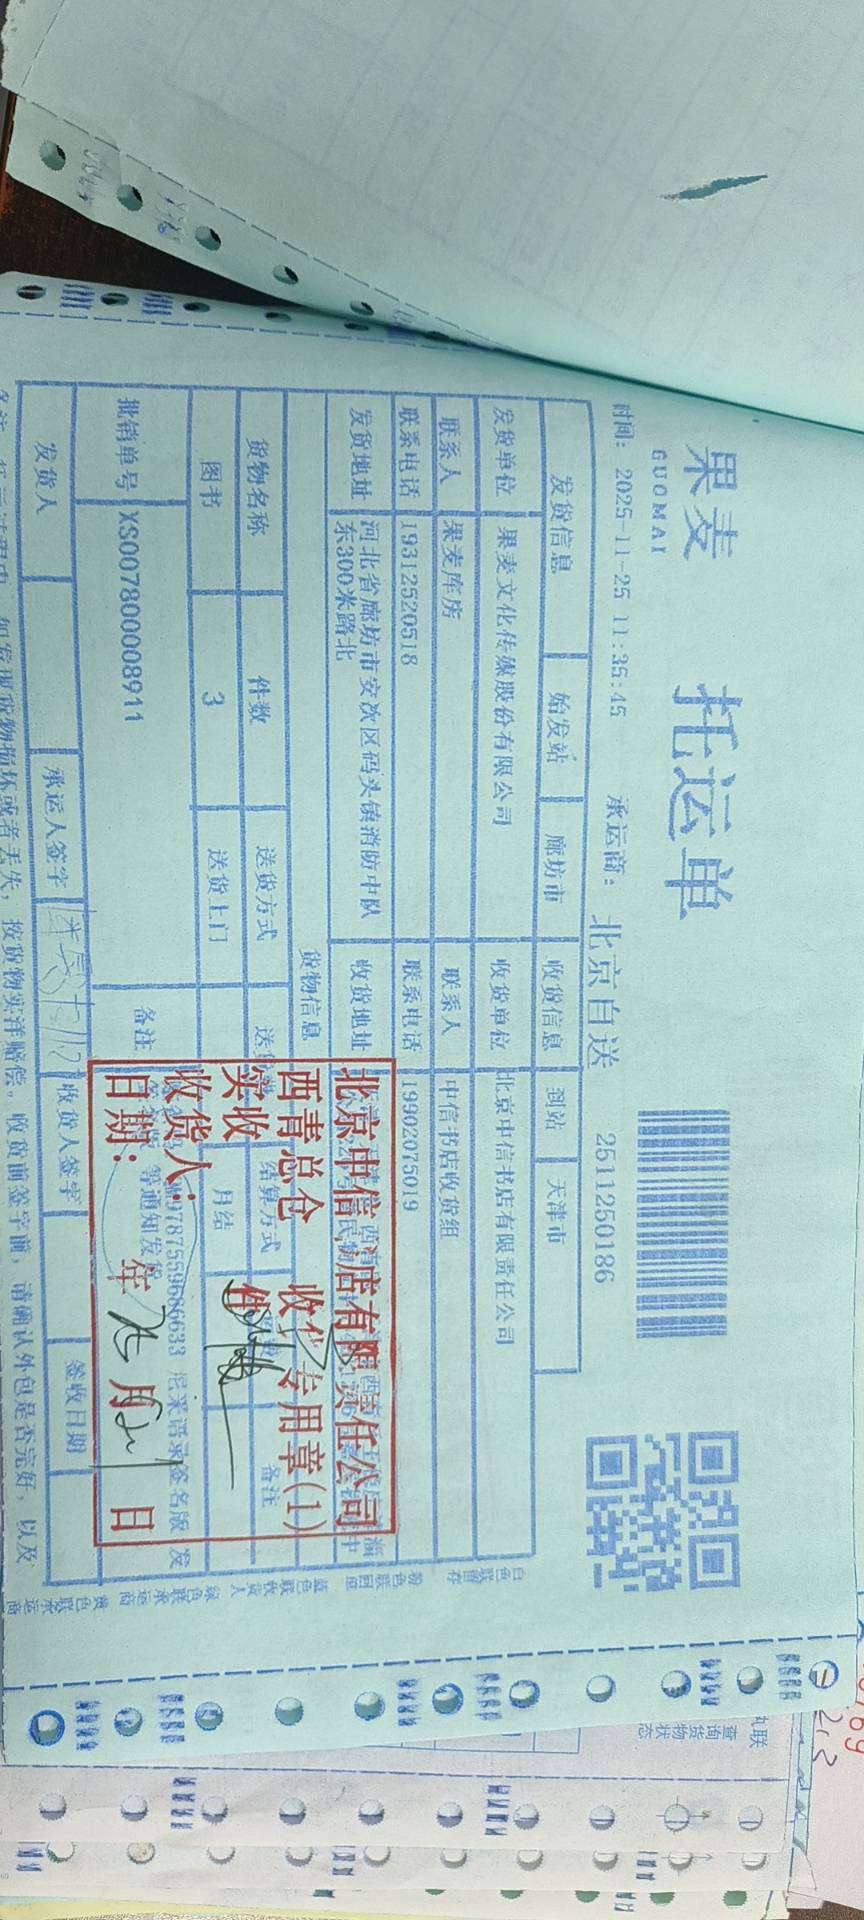 果麦
GUOMAI
托运单
时间: 2025-11-25 11:35:45 承运商: 北京自送 2511250186
发货信息 始发站 廊坊市 收货信息 到站 天津市
发货单位 果麦文化传媒股份有限公司 收货单位 北京中信书店有限责任公司
联系人 果麦库房 联系人 中信书店收货组
联系电话 19312520518 联系电话 19902075019
发货地址 河北省廊坊市安次区码头镇消防中队东300米路北 收货地址
货物信息
货物名称 件数 送货方式 结算方式 备注
图书 3 送货上门 月结
批销单号 XS00780008911 备注 9787559686633 尼采语录签名版 发
等通知发货
发货人 承运人签字 收货人签字 签收日期
如发现货物损坏或者丢失, 按货物实洋赔偿。收货前签字前, 请确认外包是否完好, 以及
北京中信书店有限责任公司
西青总仓 收货专用章(1)
实收 件
收货人:
日期: 年 月 日
白色联留存
粉色联回单
蓝色联收货人
绿色联承运商
黄色联承运商
查询货物状态